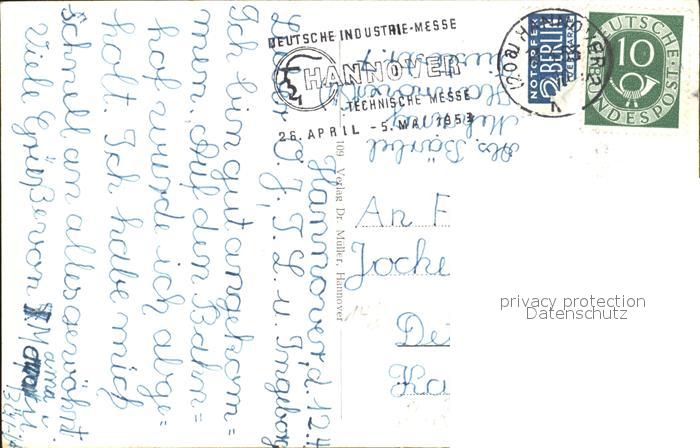 DEUTSCHE INDUSTRIE-MESSE
HANNOVER
TECHNISCHE MESSE
26. APRIL - 5. MAI 1953
NOTOPFER
2 BERLIN
STEUERMARKE
HANNOVER
DEUTSCHE
10
BUNDESPOST
Hannover d. 12.4
Lieber O. J. T. L. u. Ingeborg
Ich bin gut angekom=
men. Auf den Bahn=
hof wurde ich abge=
holt. Ich habe mich
schnell an alles gewöhnt.
Viele Grüße von
Mama u.
109 Verlag Dr. Müller, Hannover
Abs. Bärbel
Hannover
An F
Jocke
De
Ka
privacy protection
Datenschutz